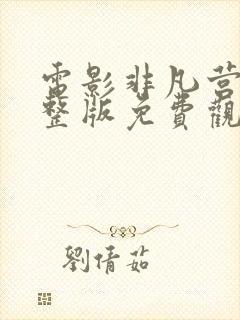 電影非凡營
整版免費觀
劉倩茹